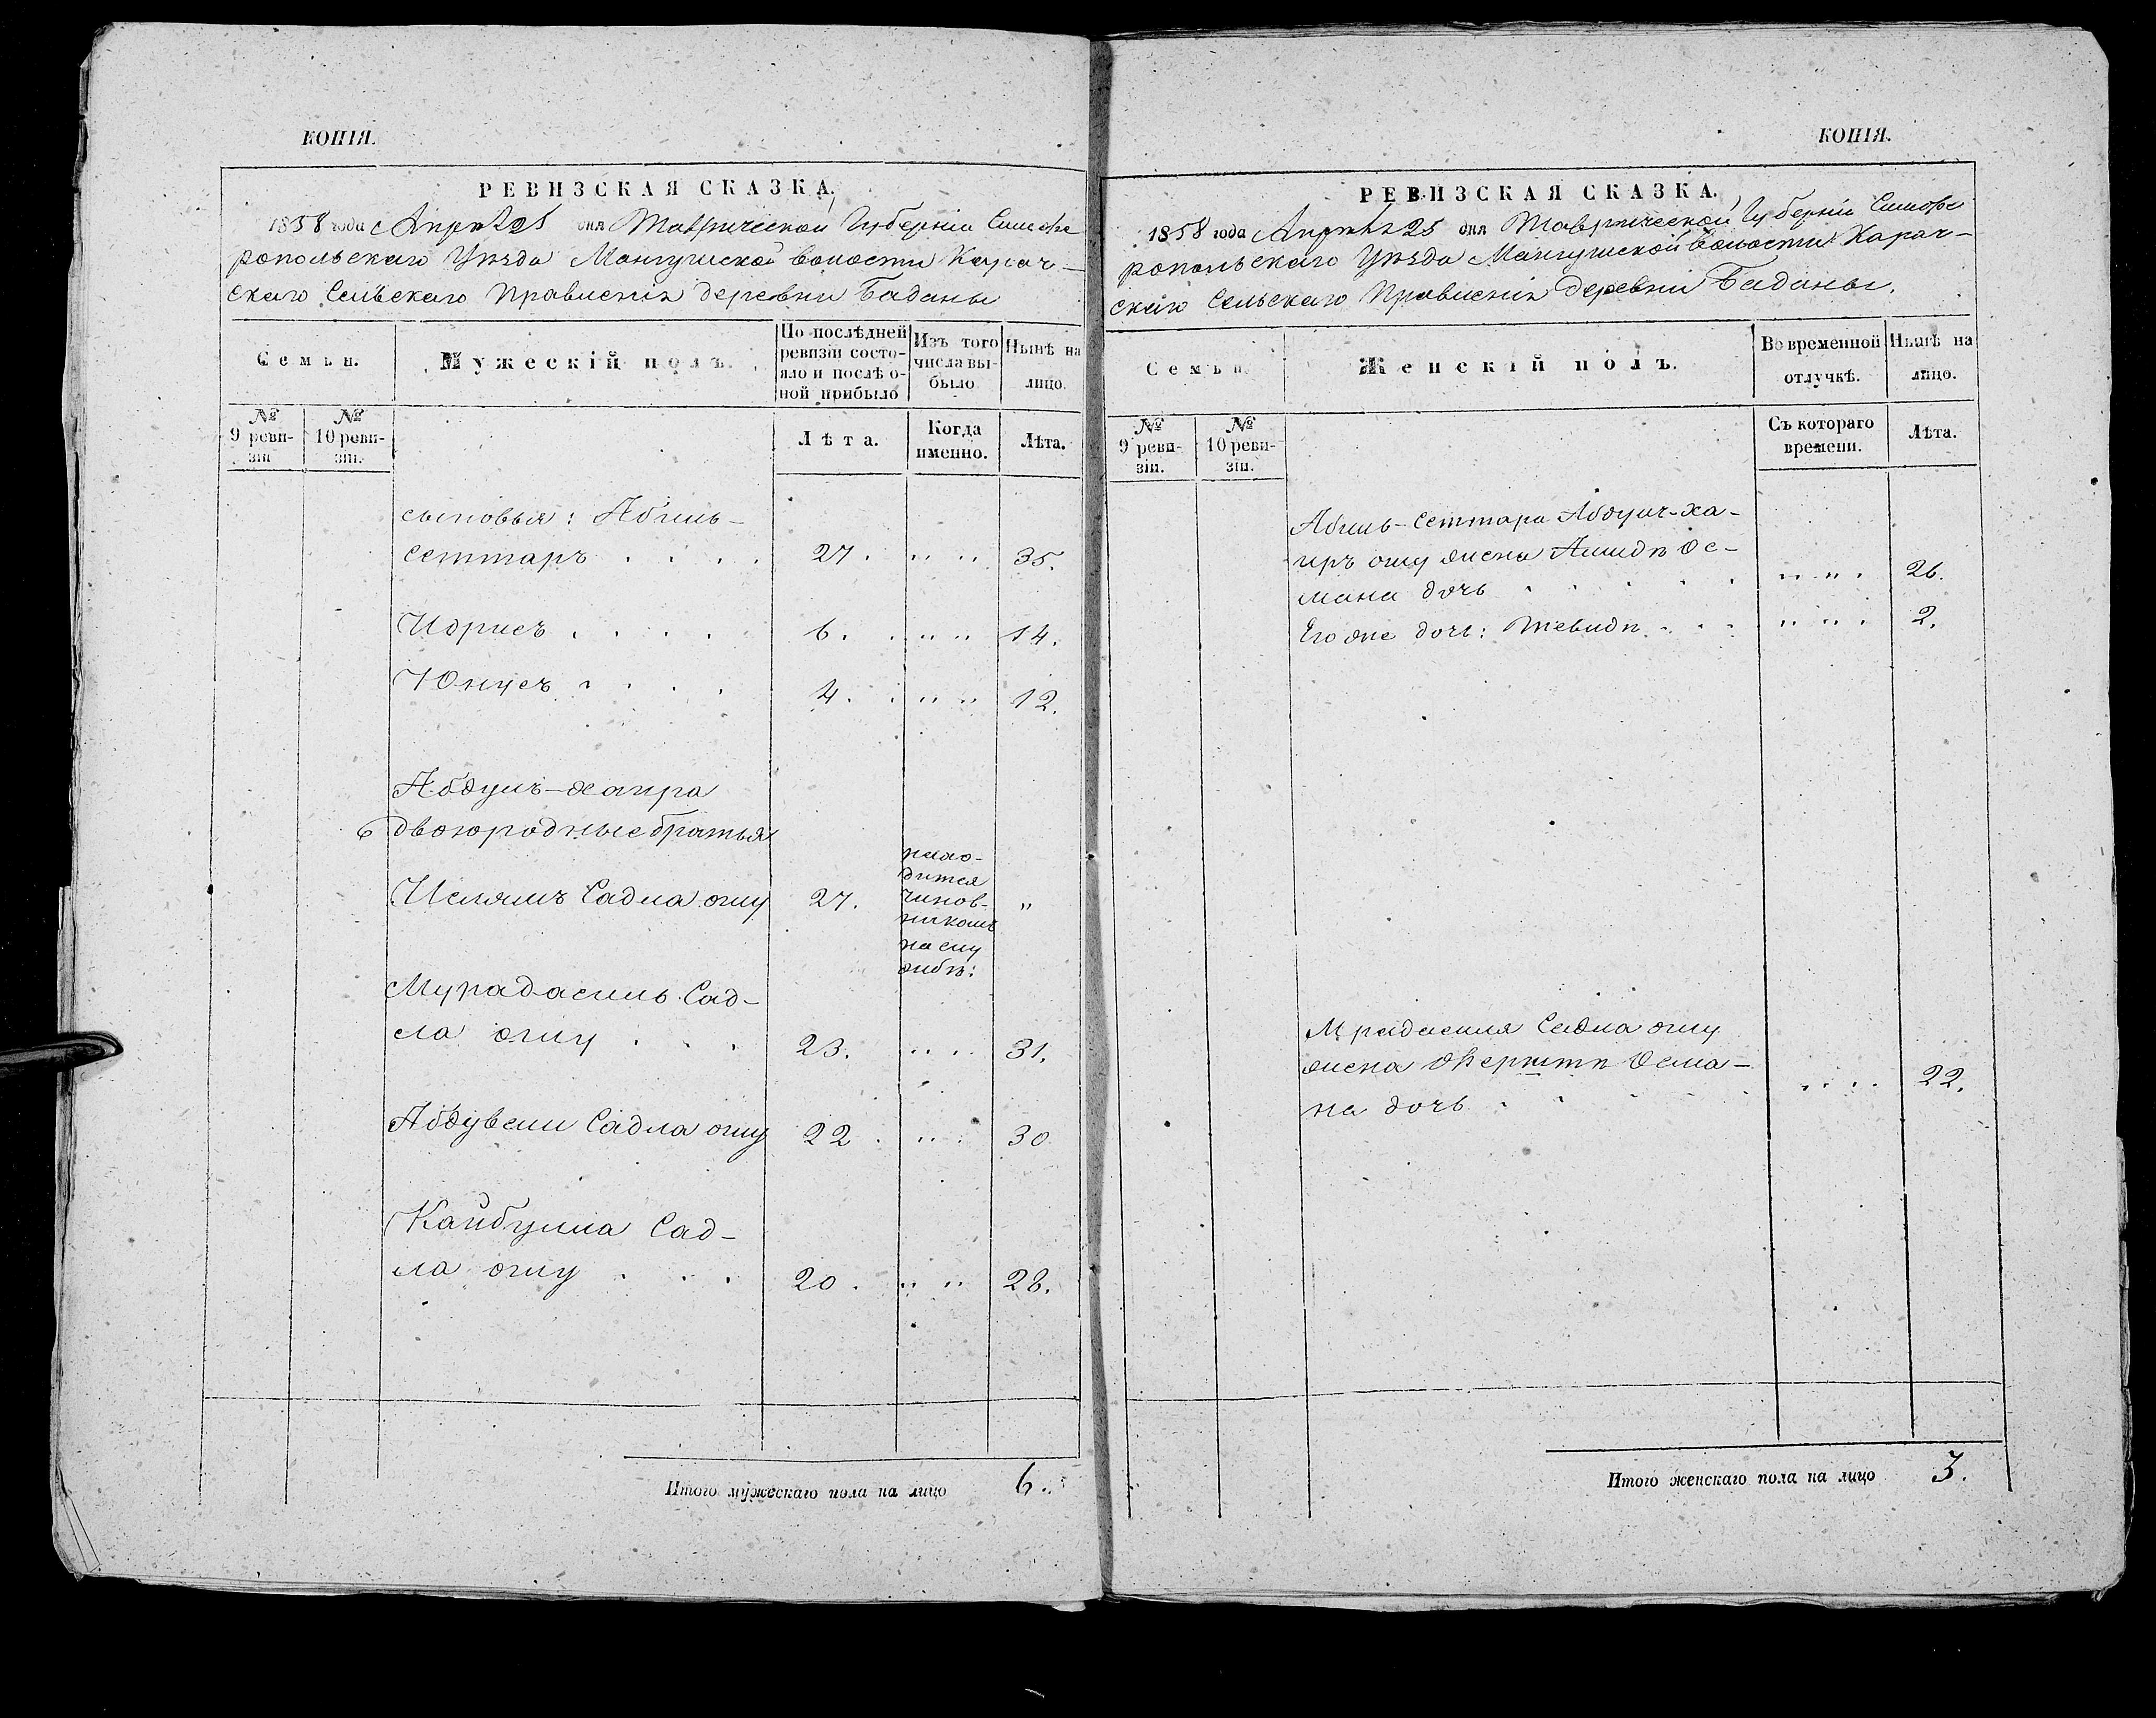 КОПІЯ.
РЕВИЗСКАЯ СКАЗКА.
1858 года Апрѣля 25 дня Таврической Губерніи Симфе
ропольскаго Уѣзда Мангушской волости Карач-
скаго Сельскаго Правленія деревни Баданы
Семьи. Мужескій полъ. По послѣдней ревизіи состояло и послѣ оной прибыло Изъ того числа выбыло Нынѣ на лицо.
№ 9 ревизіи № 10 ревизіи. Лѣта. Когда именно. Лѣта.
сыновья: Абиль-
Сеттаръ . . . . 27. " " 35.
Идрисъ . . . . 6. " " 14.
Юнусъ . . . . 4. " " 12.
Абдулъ-хаира
6 двоюродные братья
нахо-
дится
Ислямъ Садла оглу 27. чинов- "
никомъ
на слу
жбѣ:
Мурадасиль Сад-
ла оглу . . . 23. " " 31.
Абдувели Садла оглу 22. " " 30
Кайбулла Сад-
ла оглу . . . 20. " " 28.
Итого мужескаго пола на лицо 6.
КОПІЯ.
РЕВИЗСКАЯ СКАЗКА.
1858 года Апрѣля 25 дня Таврической Губерніи Симфе
ропольскаго Уѣзда Мангушской волости Карач-
скаго Сельскаго Правленія деревни Баданы.
Семьи. Женскій полъ. Во временной отлучкѣ. Нынѣ на лицо.
№ 9 ревизіи. № 10 ревизіи. Съ котораго времени. Лѣта.
Абиль-Сеттара Абдул-ха-
иръ оглу жена Ос-
мана дочь . . . . " " 26.
Его же дочь: Тевидѣ . . . " " 2.
Мрадасиля Садла оглу
жена Осма-
на дочь . . . . " " 22.
Итого женскаго пола на лицо 3.